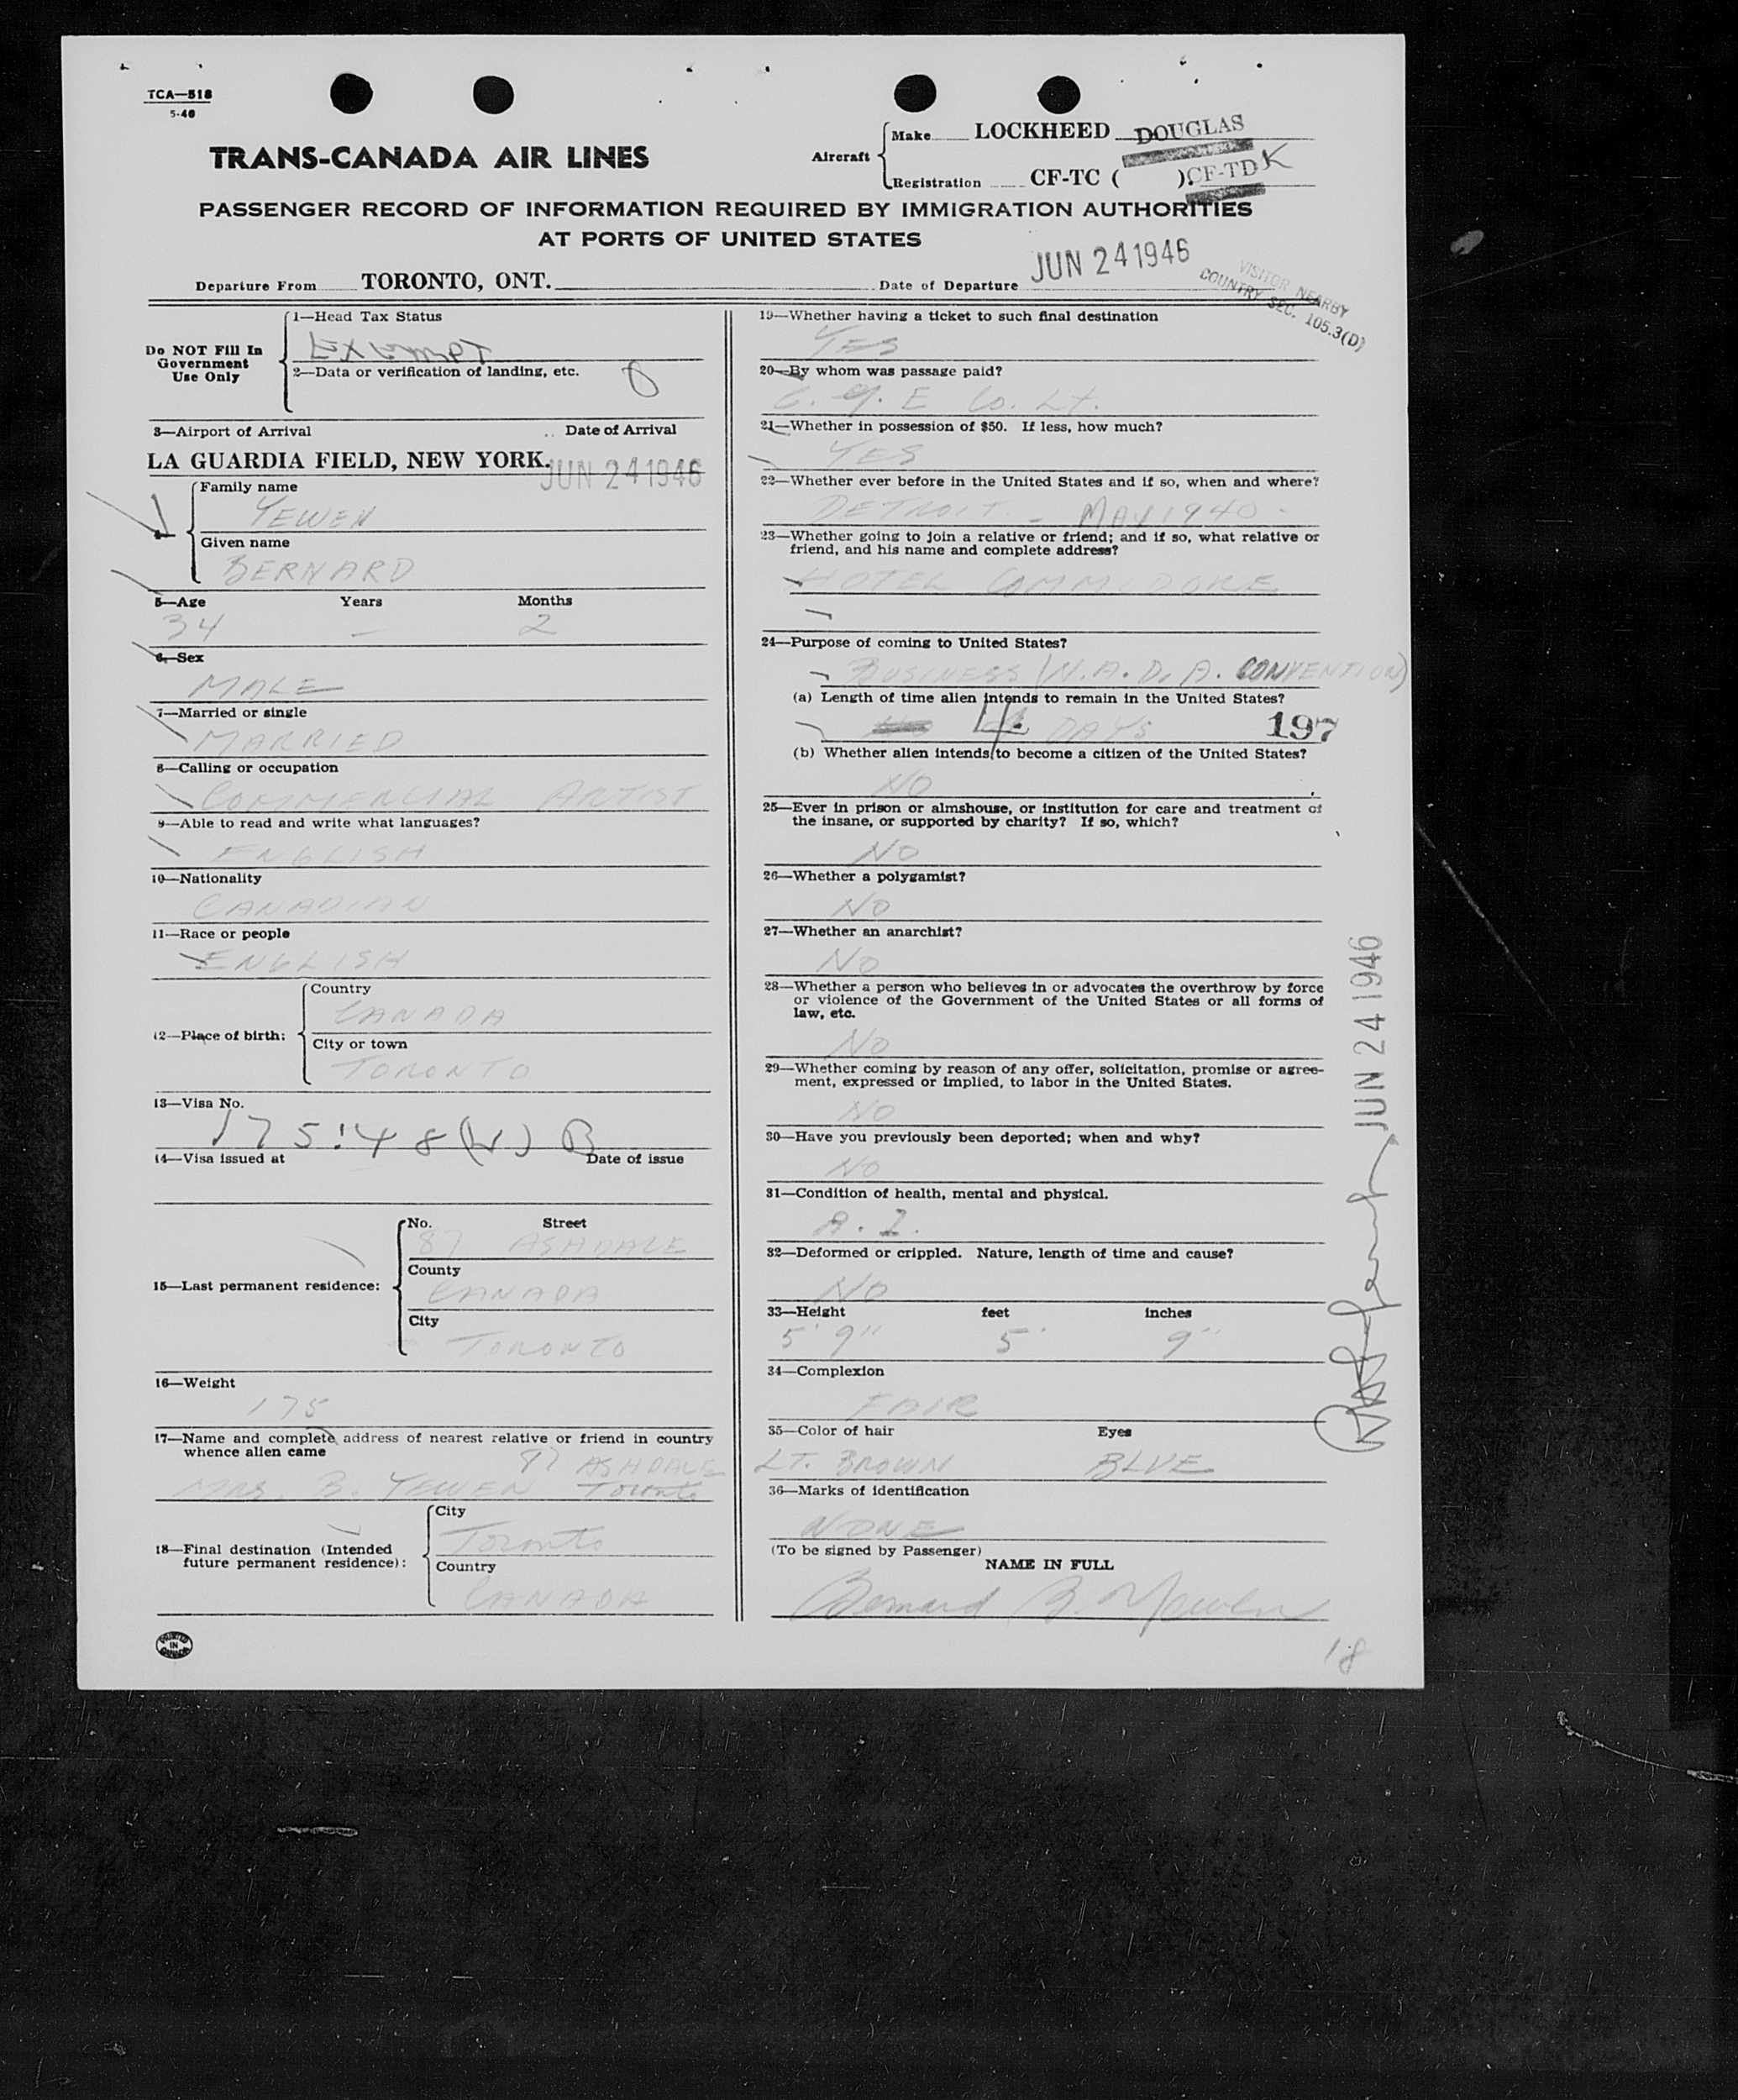 TCA—518
5-46
TRANS-CANADA AIR LINES
Aircraft
Make LOCKHEED DOUGLAS
Registration CF-TC ( ). CF-TDK
PASSENGER RECORD OF INFORMATION REQUIRED BY IMMIGRATION AUTHORITIES
AT PORTS OF UNITED STATES
Departure From TORONTO, ONT. Date of Departure JUN 24 1946
VISITOR NEARBY
COUNTRY SEC. 105.3(D)
Do NOT Fill In
Government
Use Only
1—Head Tax Status
Exempt
2—Data or verification of landing, etc.
3—Airport of Arrival Date of Arrival
LA GUARDIA FIELD, NEW YORK. JUN 24 1946
Family name
YEWEN
Given name
BERNARD
5—Age Years Months
34 — 2
6.—Sex
MALE
7—Married or single
MARRIED
8—Calling or occupation
COMMERCIAL ARTIST
9—Able to read and write what languages?
ENGLISH
10—Nationality
CANADIAN
11—Race or people
ENGLISH
12—Place of birth:
Country
CANADA
City or town
TORONTO
13—Visa No.
14—Visa issued at Date of issue
15—Last permanent residence:
No. Street
87 ASHDALE
County
CANADA
City
TORONTO
16—Weight
175
17—Name and complete address of nearest relative or friend in country
whence alien came
87 ASHDALE
MRS. B. YEWEN Toronto
18—Final destination (Intended
future permanent residence):
City
Toronto
Country
CANADA
PRINTED
IN
CANADA
19—Whether having a ticket to such final destination
YES
20—By whom was passage paid?
C. G. E Co. Lt.
21—Whether in possession of $50. If less, how much?
YES
22—Whether ever before in the United States and if so, when and where?
DETROIT - MAY 1940 -
23—Whether going to join a relative or friend; and if so, what relative or
friend, and his name and complete address?
HOTEL COMMODORE
24—Purpose of coming to United States?
BUSINESS (N.A.D.A. CONVENTION)
(a) Length of time alien intends to remain in the United States?
4 DAYS 197
(b) Whether alien intends to become a citizen of the United States?
NO
25—Ever in prison or almshouse, or institution for care and treatment of
the insane, or supported by charity? If so, which?
NO
26—Whether a polygamist?
NO
27—Whether an anarchist?
NO
28—Whether a person who believes in or advocates the overthrow by force
or violence of the Government of the United States or all forms of
law, etc.
NO
29—Whether coming by reason of any offer, solicitation, promise or agree-
ment, expressed or implied, to labor in the United States.
NO
30—Have you previously been deported; when and why?
NO
31—Condition of health, mental and physical.
A. 1.
32—Deformed or crippled. Nature, length of time and cause?
NO
33—Height feet inches
5' 9" 5' 9"
34—Complexion
FAIR
35—Color of hair Eyes
LT. BROWN BLUE
36—Marks of identification
NONE
(To be signed by Passenger)
NAME IN FULL
Bernard B. Yewen
JUN 24 1946
18